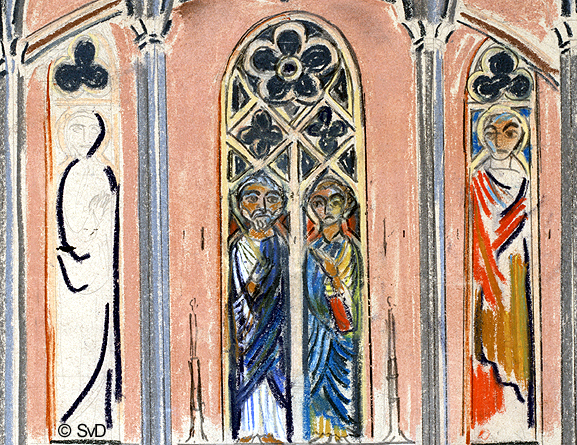 © SvD